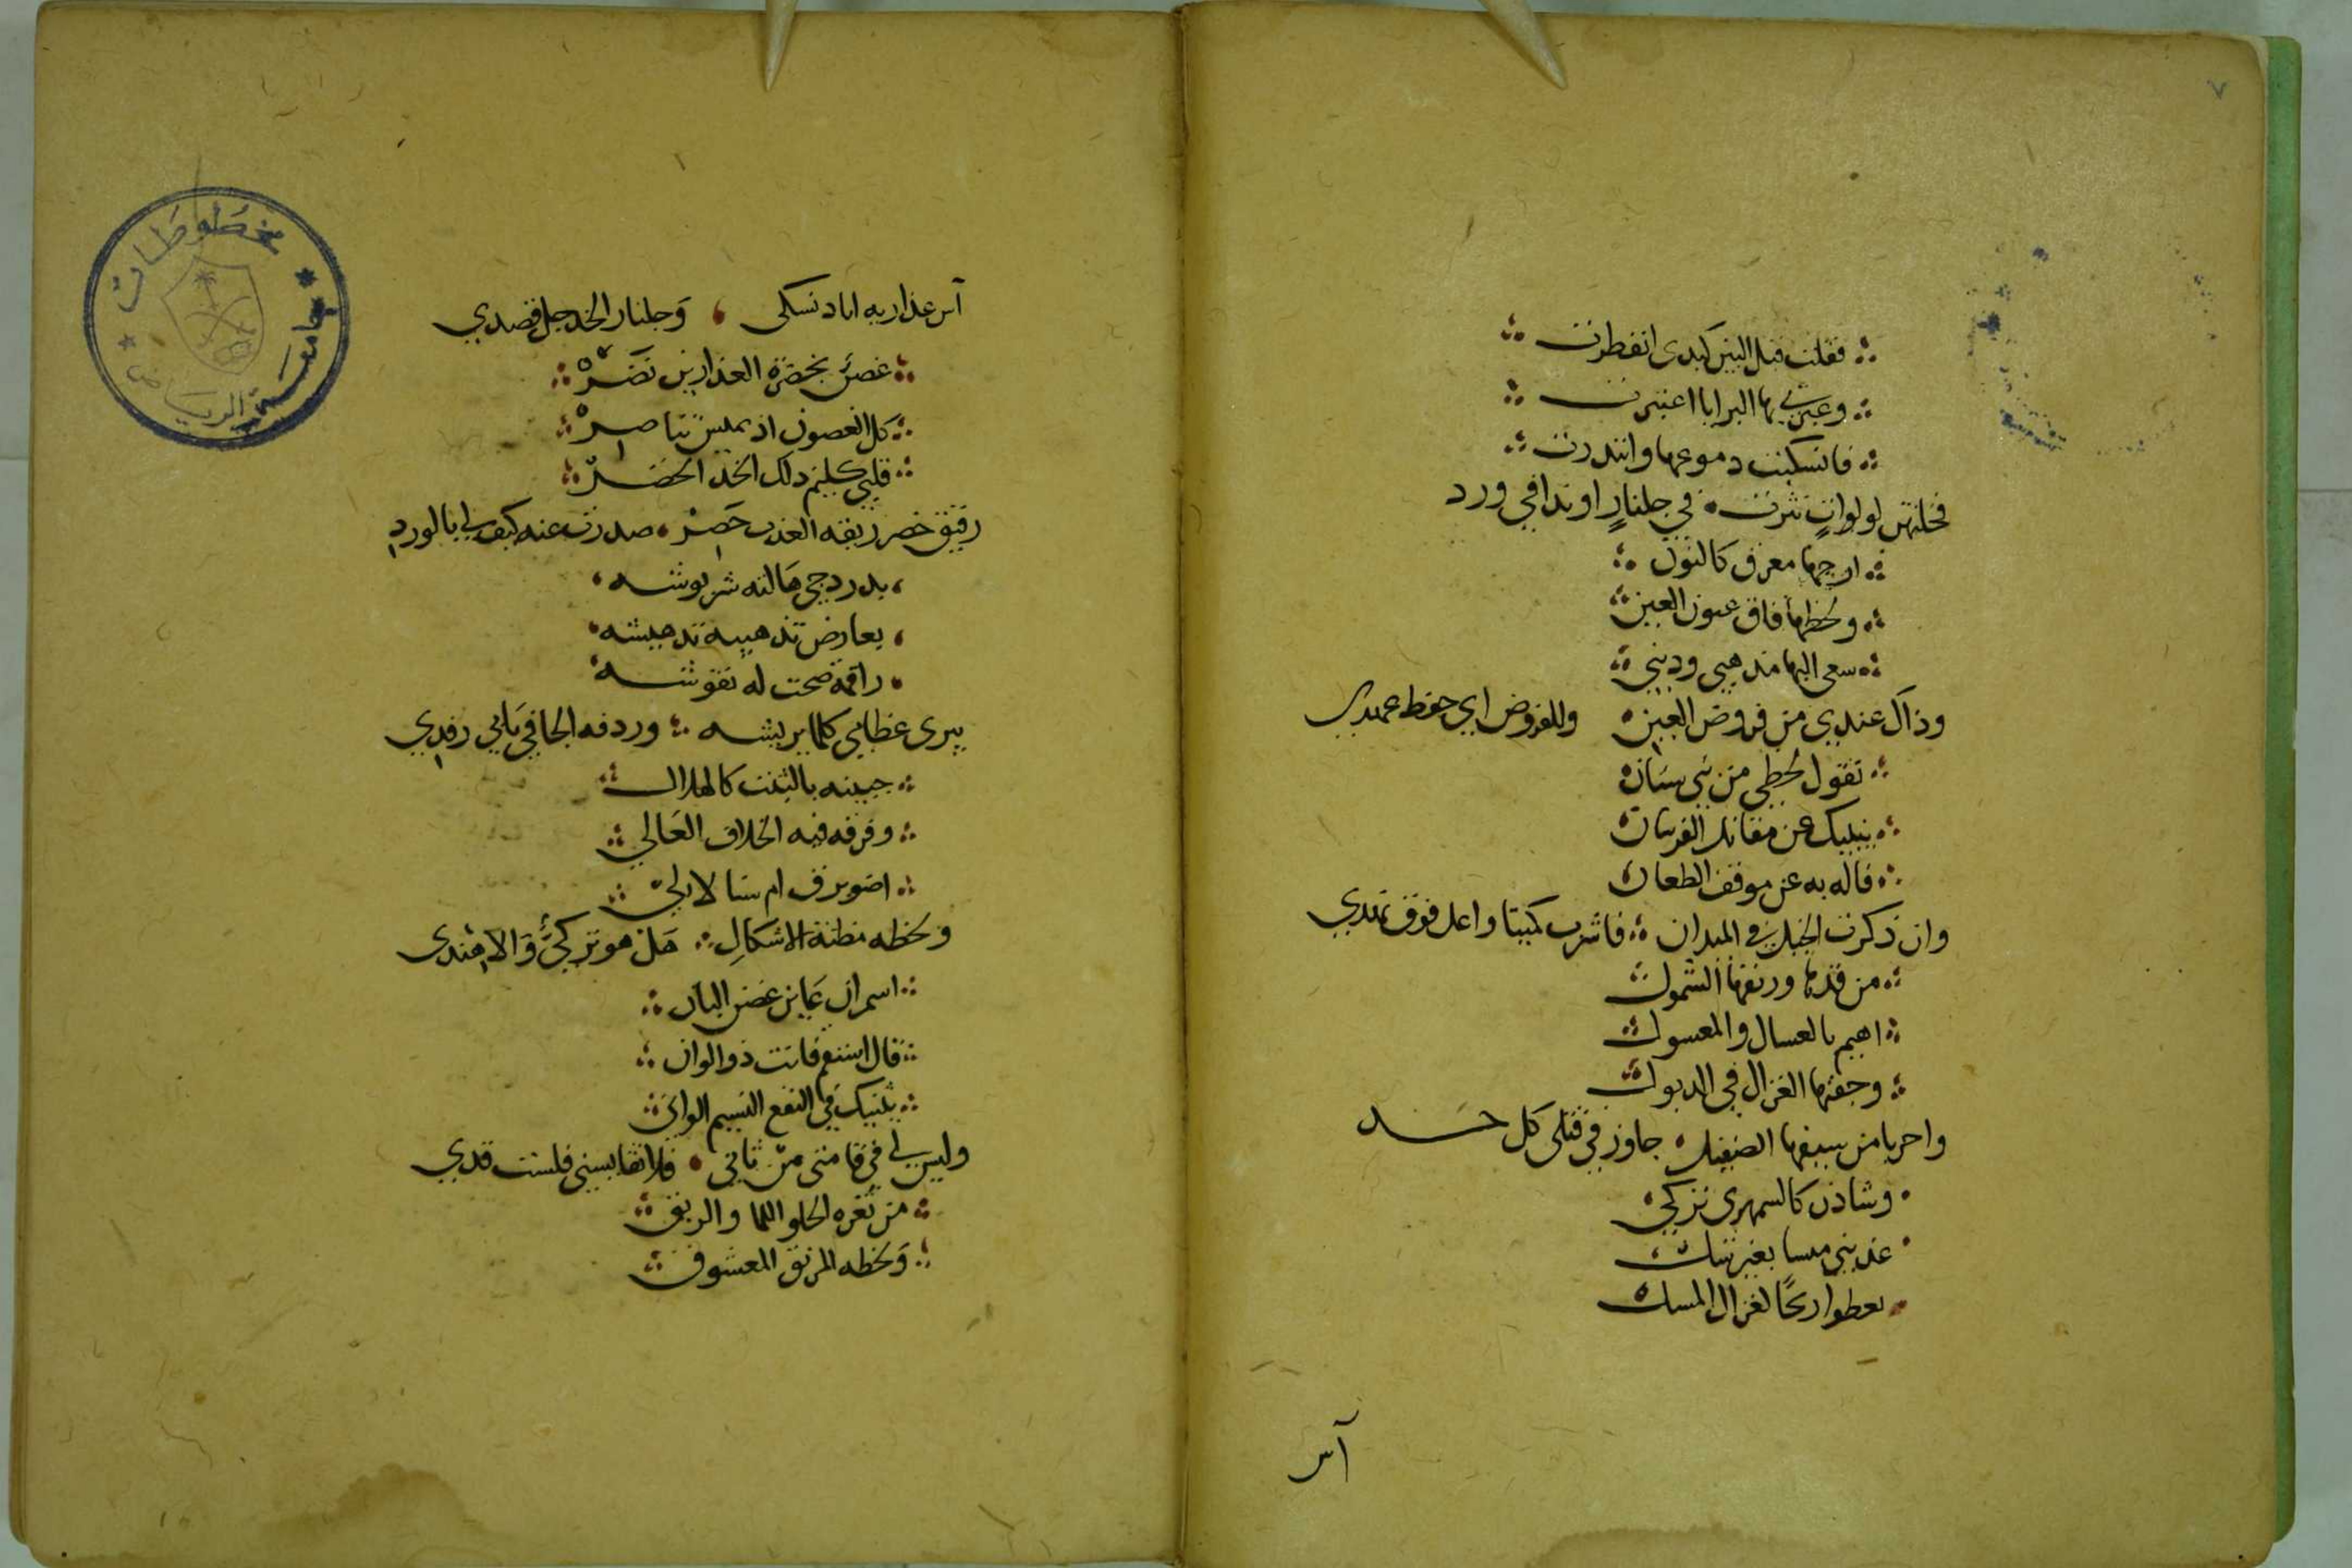 ٧
فقلت قبل البين كبدى انفطرت
وعبرتي بها البرايا اعتبرت
فانسكبت دموعها وانتدرت
فخلتهن لولوات نثرت في جلنارٍ او ندا في ورد
ازجها معرق كالنون
ولحظها فاق عيون العين
سعى اليها مذهبي وديني
وذاك عندي من فروض العين وللفروض اي حفظ عهدي
تقول لحظي من بني سنان
ينبيك عن مقاتل الفرسان
فاله به عن موقف الطعان
وان ذكرت الخيل في الميدان فاشرب كميتا واعل فوق نهدي
من قدها وريقها الشمول
اهيم بالعسال والمعسول
وجفنها الغزال في الدبول
واحربا من سيفها الصقيل جاوز في قتلى كل حد
وشاذن كالسمهرى تركي
عذبني ميسا بغير شك
يعطوا ريحًا لغزال المسك
آس
آس عذاريه اباد نسكى وَجلنار الخد جل قصدي
غصن بخضرة العذارين نَضَرْ
كل الغصون اذ يميس تناصرْ
قلبي كليم ذلك الخد الخضر
رقيق خصر ريقه العذب خَصِرْ صدرت عنه كيف لي بالورد
بدر دجى هالته شربوشه
يعارض تذهيبه تدهيشه
راقمة صحت له نقوشه
يبرى عظامي كلما يريشه وردفه الجافي يأبي رفدي
جبينه بالثبت كالهلال
وفرقه فيه الخلاف العَالي
اضو برق ام سنا لالي
ولحظه مظنة الاشكالِ هَل هو تركيٌّ وَالا هندى
اسمر ان عَاين غصن البان
قال استقم فانت ذو الوان
يثنيك في النفع النسيم الوانى
وليس لي في قامتى من ثاني فلا تقايسني فلست قدي
من ثغره الحلو اللما والريق
وَلحظه المرنق المعشوق
مخطوطات
جامعة الرياض